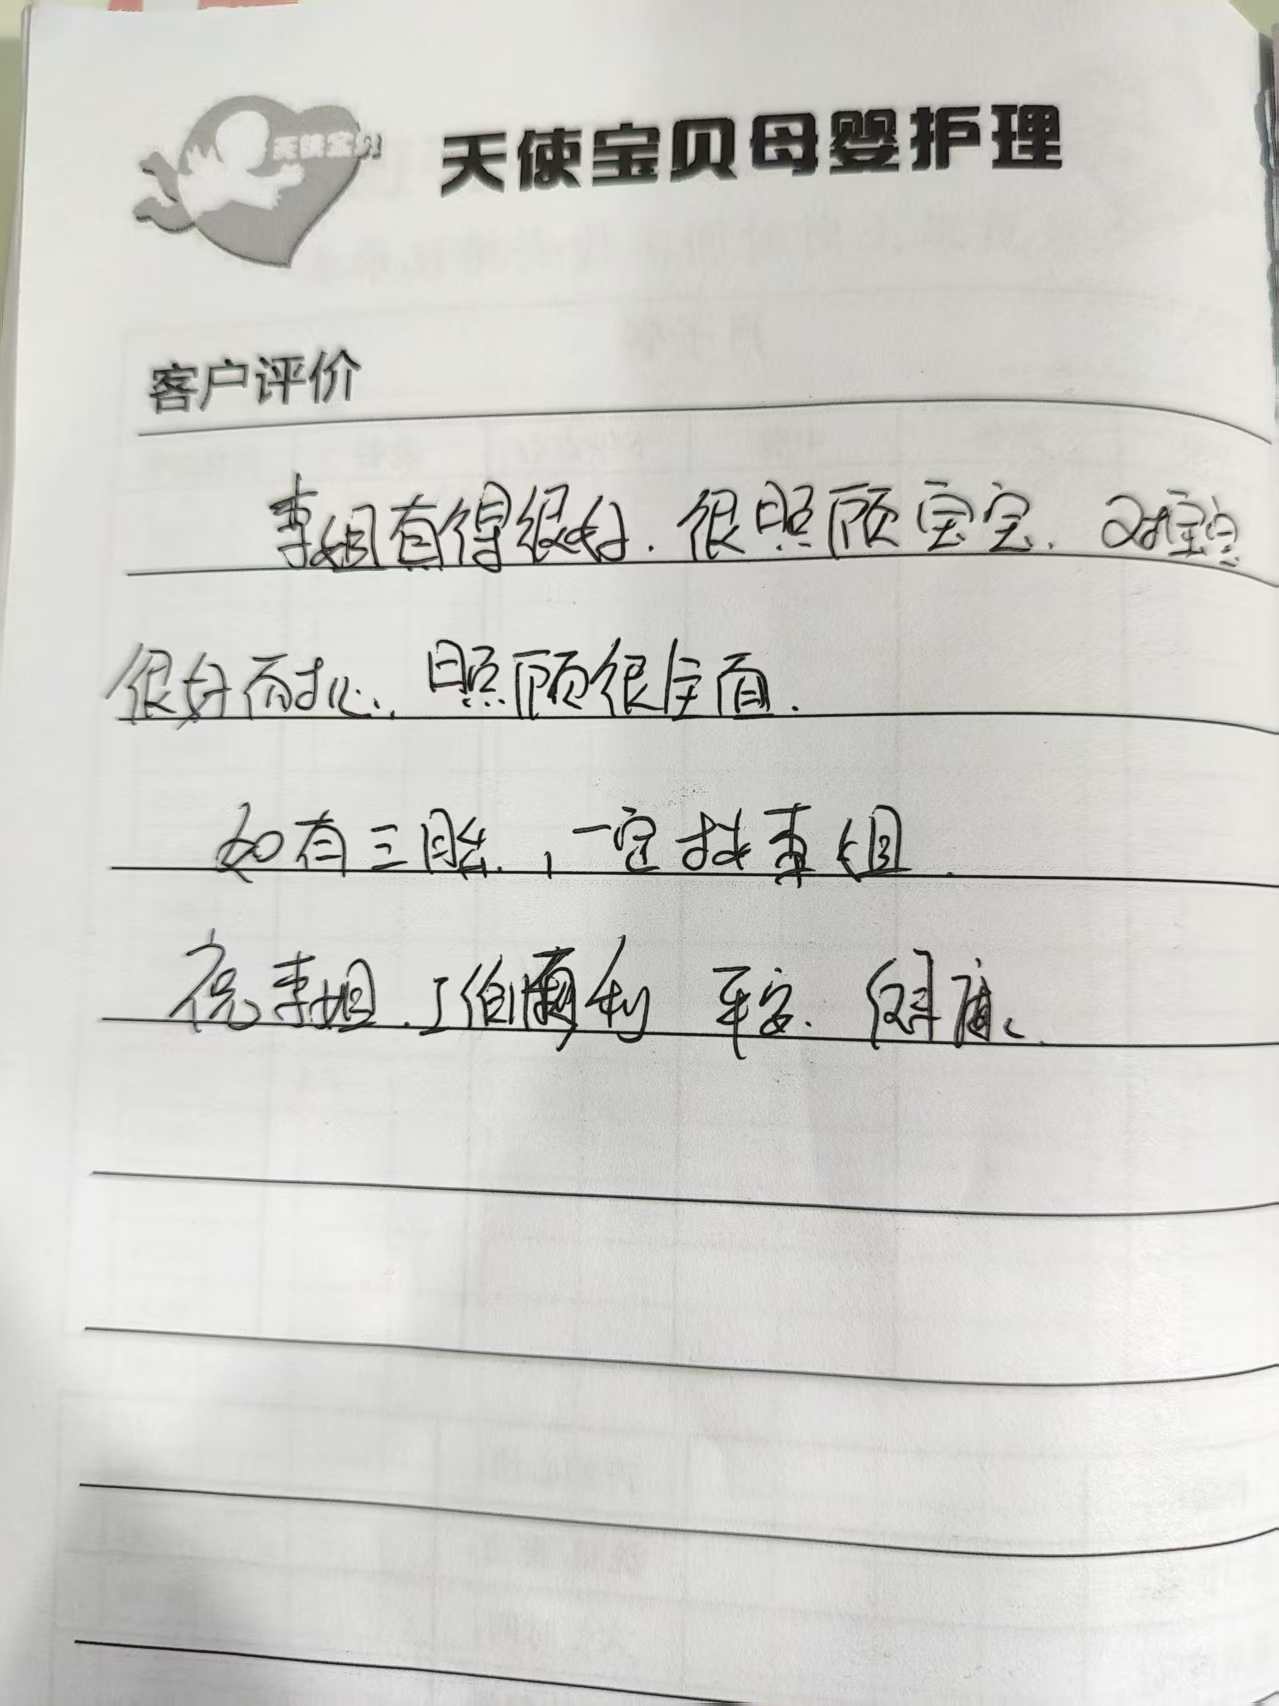 天使宝贝
天使宝贝母婴护理
客户评价
李姐看得很好.很照顾宝宝.对宝宝
很好耐心.照顾很全面.
如有三胎,一定找李姐.
祝李姐.工作顺利 平安.健康.